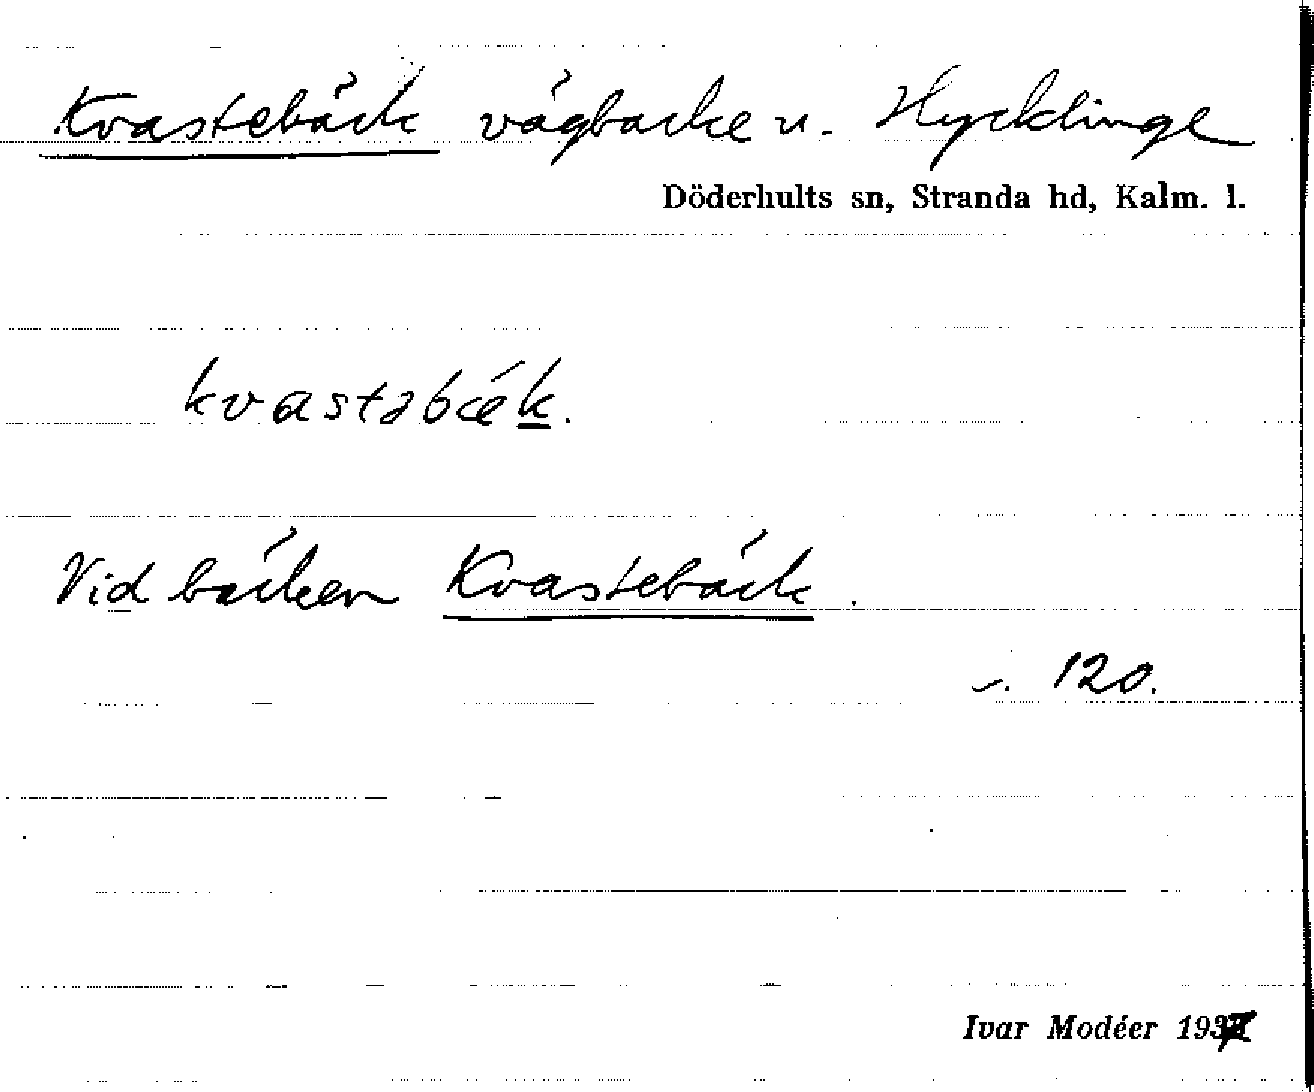 Kvastebäck vägbacke u. Hycklinge
Döderhults sn, Stranda hd, Kalm. l.
kvastəbǽk.
Vid bäcken Kvastebäck.
s. 120.
Ivar Modéer 1937